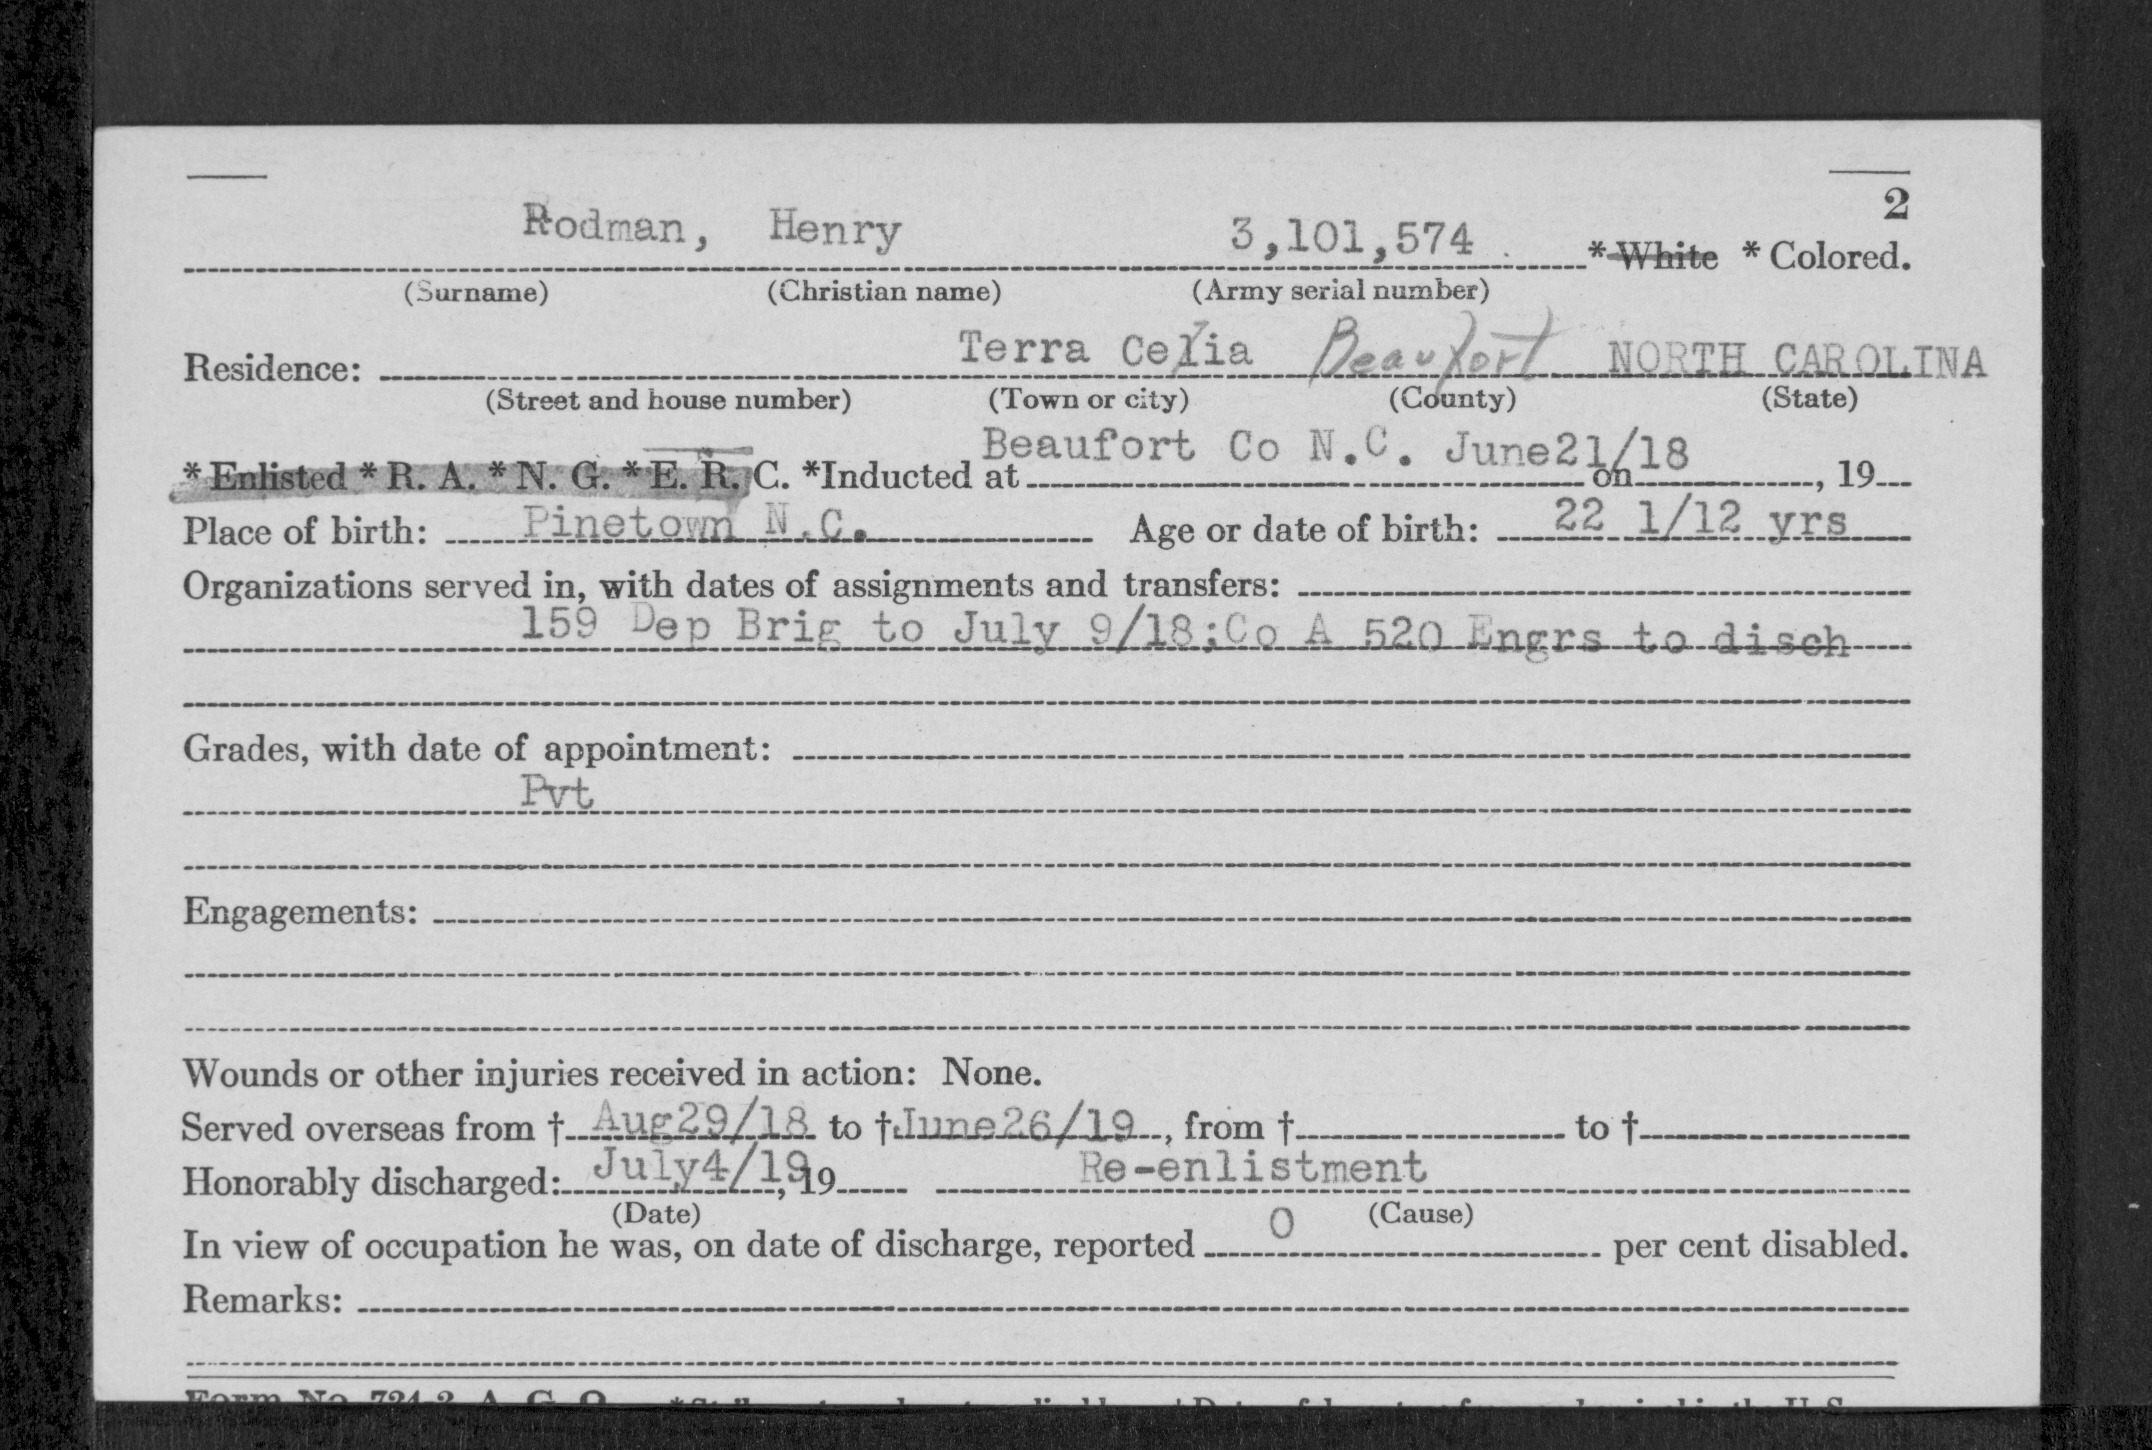 2
Rodman, Henry 3,101,574 * White * Colored.
(Surname) (Christian name) (Army serial number)
Residence: Terra Celia Beaufort NORTH CAROLINA
(Street and house number) (Town or city) (County) (State)
* Enlisted * R. A. * N. G. * E. R. C. *Inducted at Beaufort Co N.C. June21/18 on , 19
Place of birth: Pinetown N.C. Age or date of birth: 22 1/12 yrs
Organizations served in, with dates of assignments and transfers:
159 Dep Brig to July 9/18;Co A 520 Engrs to disch
Grades, with date of appointment:
Pvt
Engagements:
Wounds or other injuries received in action: None.
Served overseas from † Aug29/18 to † June26/19, from † to †
Honorably discharged: July4/19, 19 Re-enlistment
(Date) (Cause)
In view of occupation he was, on date of discharge, reported 0 per cent disabled.
Remarks:
Form No. 724-2 A. G. O.